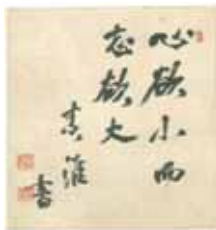 心欲小而
志欲大
素
書